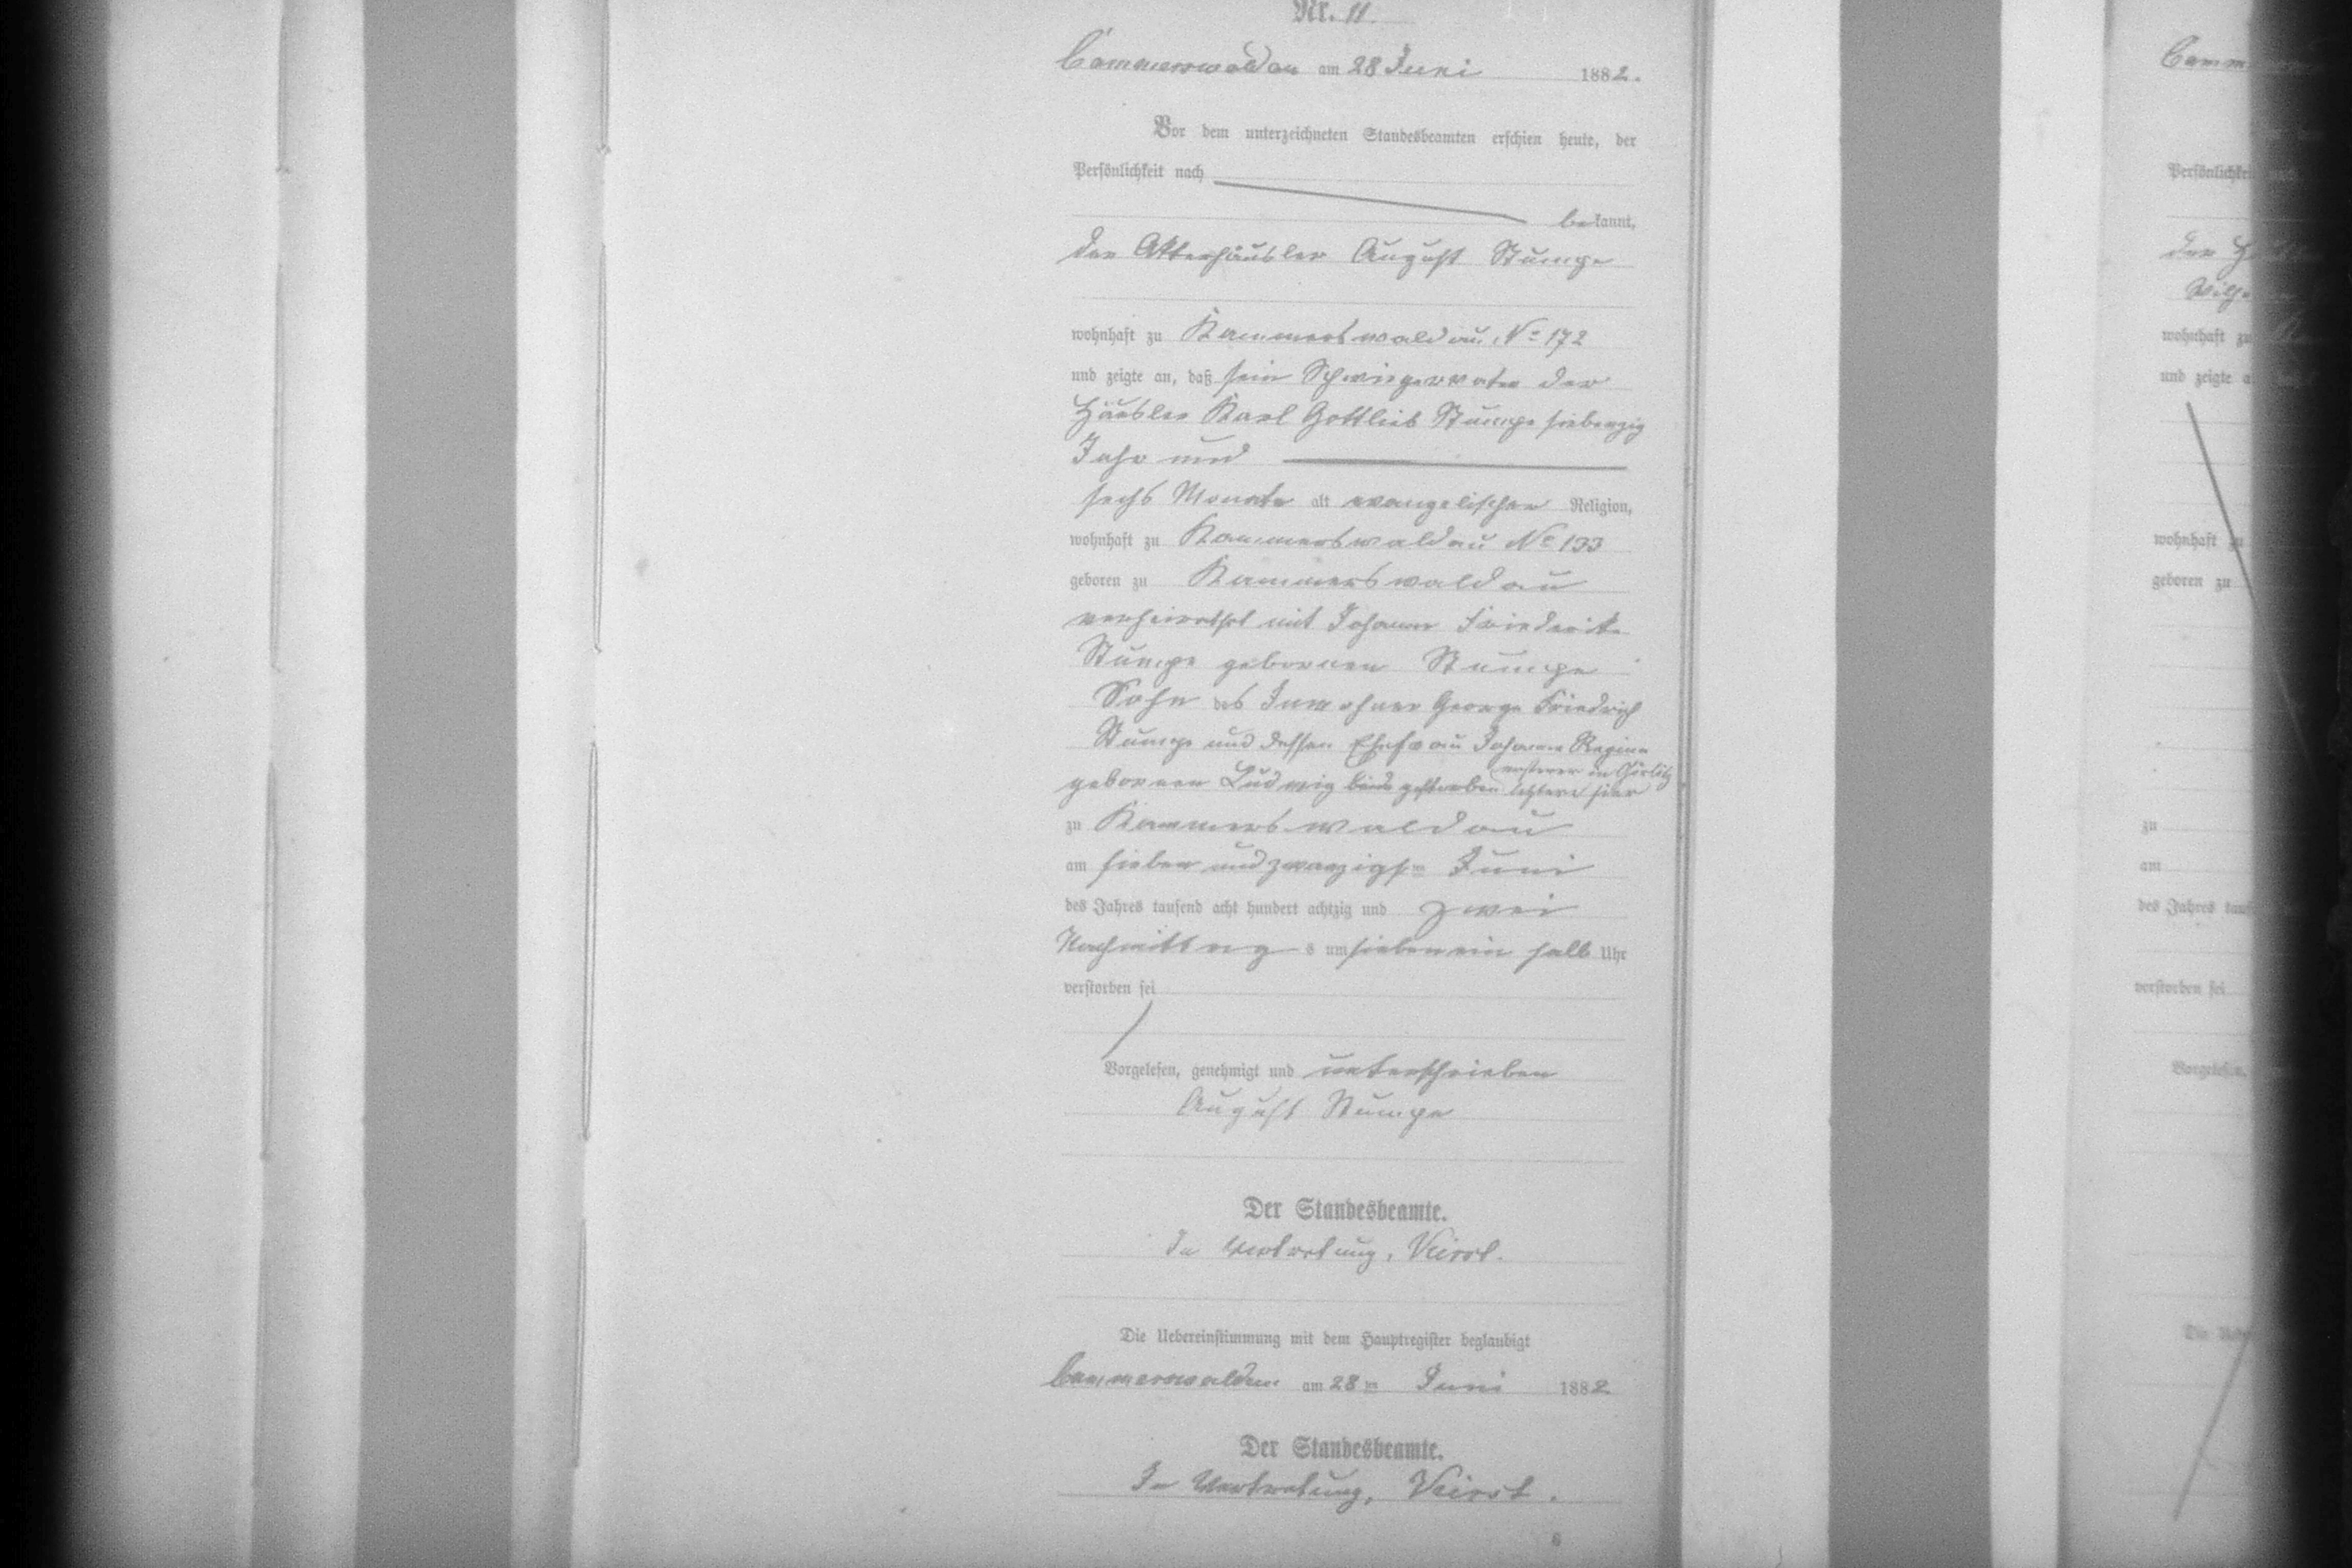 Nr. 11.
Cammerswaldau am 28 Juni 1882.
Vor dem unterzeichneten Standesbeamten erschien heute, der
Persönlichkeit nach
bekannt,
der Ackerhäusler August Stumpe
wohnhaft zu Kammerswaldau, No 172
und zeigte an, daß sein Schwiegervater der
Häusler Karl Gottlieb Stumpe siebenzig
Jahr und
sechs Monate alt evangelischer Religion,
wohnhaft zu Kammerswaldau No 133
geboren zu Kammerswaldau
verheirathet mit Johanne Friederike
Stumpe geborenen Stumpe
Sohn des Inwohner George Friedrich
Stumpe und dessen Ehefrau Johanne Regina
ersterer in Görlitz
geborenen Ludwig beide gestorben letztere hier
zu Kammerswaldau
am sieben und zwanzigsten Juni
des Jahres tausend acht hundert achtzig und zwei
Nachmittags um sieben ein halb Uhr
verstorben sei
Vorgelesen, genehmigt und unterschrieben
August Stumpe
Der Standesbeamte.
In Vertretung,
Die Uebereinstimmung mit dem Hauptregister beglaubigt
Cammerswaldau am 28ten Juni 1882
Der Standesbeamte.
In Vertretung,
8
Camm
Persönlichkei
der
Wilhe
wohnhaft zu
und zeigte a
wohnhaft zu
geboren zu
zu
am
des Jahres tau
verstorben sei
Vorgelesen,
Die Ueb